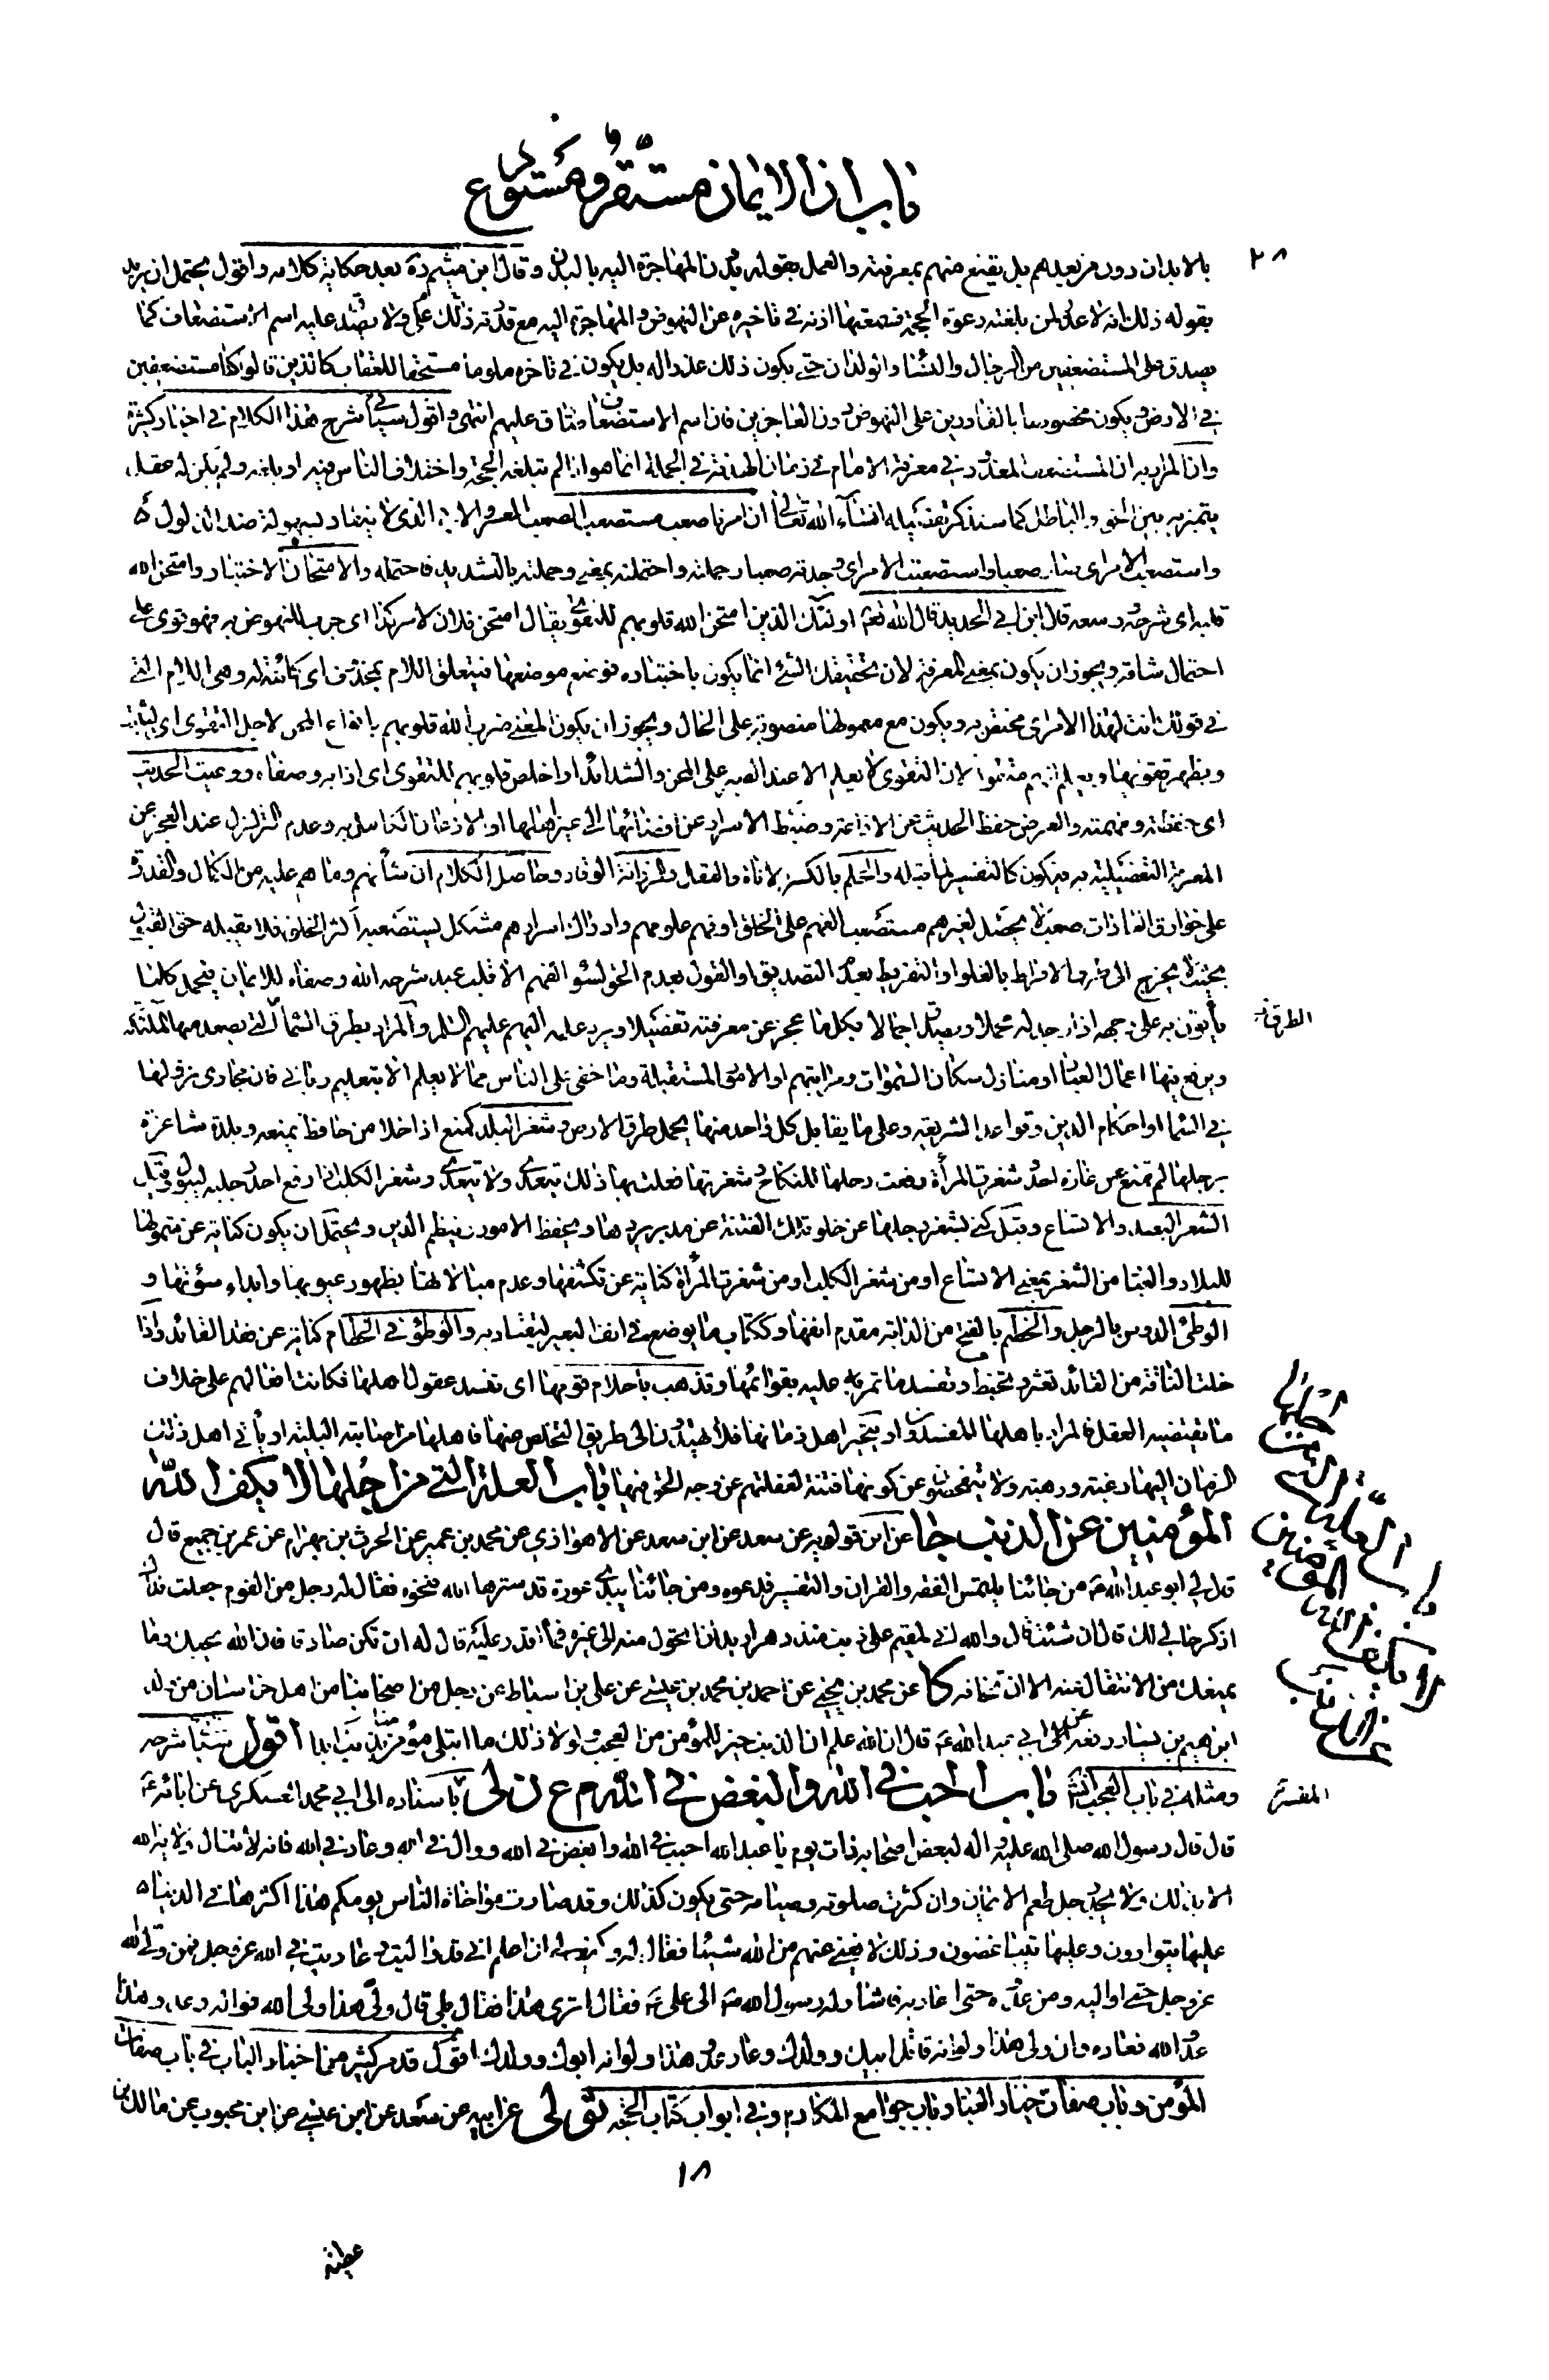 باب ان الايمان مستقر ومستودع
٢٨
بالابدان دون من بعدهم بل يقنع منهم بمعرفته والعمل بقوله بدون المهاجرة اليه بالبدن وقال ابن ميثم ره بعد حكاية كلامه واقول يحتمل ان يريد
بقوله ذلك انه لا عذر لمن بلغته دعوة الحجة فسمعتها اذنه في تاخيره عن النهوض والمهاجرة اليه مع قدرته ذلك على ولا يصدق عليه اسم الاستضعاف كما
يصدق على المستضعفين من الرجال والنساء والولدان حتى يكون ذلك عذرا له بل يكون في تاخره ملوما مستحقا للعقاب كالذين قالوا كنا مستضعفين
في الارض ويكون مخصوصا بالقادرين على النهوض دون العاجزين فان اسم الاستضعاف صادق عليهم انتهى واقول سياتي شرح هذا الكلام في اخبار كثيرة
وان المراد به ان المستضعف المعذور في معرفة الامام في زمان الهدنة في الجملة انما هو اذا لم تبلغه الحجة واختلاف الناس فيه او بلغه ولم يكن له عقل
يتميز به بين الحق والباطل كما سنذكر تفصيله انشاء الله تعالى ان امرنا صعب مستصعب الصعب العسر والابي الذي لا ينقاد بسهولة ضد الذلول
واستصعب الامر اي صار صعبا واستصعبت الامر اي وجدته صعبا وحملته واحتملته بمعنى وحملته بالتشديد فاحتمله والامتحان الاختبار وامتحن الله
قلبه اي شرحه ووسعه قال ابن ابي الحديد قال الله تعالى اولئك الذين امتحن الله قلوبهم للتقوى يقال امتحن فلان لامر كذا اي جرب للنهوض به فهو قوي على
احتمال مشاقه ويجوز ان يكون بمعنى المعرفة لان تحقيقك الشئ انما يكون باختباره فوضع موضعها فيتعلق اللام بمحذوف اي كائنة له وهي اللام التي
في قولك انت لهذا الامر اي مختص به ويكون مع معمولها منصوبة على الحال ويجوز ان يكون المعنى ضرب الله قلوبهم بانواع المحن لاجل التقوى اي لتثبت
ويظهر تقويها ويعلم انهم متقون لان التقوى لا يعلم الا عند الصبر على المحن والشدائد او اخلص قلوبهم للتقوى اي اذابه وصفاه ووعيت الحديث
اي حفظته وفهمته والغرض حفظ الحديث عن الاذاعة وضبط الاسرار عن افشائها الى غير اهلها او الاذعان الكامل به وعدم التزلزل عند العجز عن
المعرفة التفصيلية به فيكون كالتفسير لما قبله والحلم بالكسر الاناة والعقل والرزانة الوقار وحاصل الكلام ان شانهم وما هم عليه من الكمال والقدرة
على خوارق العادات صعب لا يحصل لغيرهم مستصعب الفهم على الخلق او فهم علومهم وادراك اسرارهم مشكل يستصعبه اكثر الخلق فلا يقبله حق القبول
بحيث لا يخرج الى طرف الافراط بالغلو او التفريط بعدم التصديق او القول بعدم الحق لسوء الفهم الا قلب عبد شرحه الله وصفاه للايمان فيحمل كلما
يأتون به على وجهه اذا وجد له محملا ويصدق اجمالا بكل ما عجز عن معرفته تفصيلا ويرد علمه اليهم عليهم السلم والمراد بطرق السماء التي يصعد منها الملائكة
الطرق
ويرفع فيها اعمال العباد او منازل سكان السموات ومراتبهم او الامور المستقبلة وما خفي على الناس مما لا يعلم الا بتعليم رباني فان مجاري نزولها
في السماء او احكام الدين وقواعد الشريعة وعلى ما يقابل كل واحد منها يحمل طرق الارض وشغر البلد كمنع اذا خلا من حافظ يمنعه وبلدة شاغرة
برجلها لم تمتنع من غارة احد وشغرت المرأة رفعت رجلها للنكاح وشغرتها فعلت بها ذلك يتعدى ولا يتعدى وشغر الكلب اذا رفع احد رجليه ليبول وقيل
الشغر البعد والاتساع وقيل كنى بشغر رجلها عن خلو تلك الفتنة عن مدبر يردها ويحفظ الامور وينظم الدين ويحتمل ان يكون كناية عن شمولها
للبلاد والعباد من الشغر بمعنى الاتساع او من شغر الكلب او من شغرت المرأة كناية عن تكشفها وعدم مبالاتها بظهور عيوبها وابداء سوئها و
الوطئ الدوس بالرجل والخطم بالفتح من الدابة مقدم انفها وككتاب ما يوضع في انف البعير ليقتاد به والوطؤ في الخطام كناية عن فقد القائد واذا
خلت الناقة من القائد تعثر وتخبط وتفسد ما تمر به عليه بقوائمها وتذهب باحلام قومها اي تفسد عقول اهلها فكانت افعالهم على خلاف
ما يقتضيه العقل فالمراد باهلها المفسدون او يتحير اهل زمانها فلا يهتدون الى طريق التخلص منها فاهلها من اصابته البلية او ياتي اهل ذلك
الزمان اليها رغبة ورهبة ولا يتفحصون عن كونها فتنة لغفلتهم عن وجه الحق فيها باب العلة التي من اجلها لا يكف الله
المؤمنين عن الذنب جا عن ابن قولويه عن سعد عن ابن سعد عن الاهوازي عن محمد بن عمير عن الحرث بن بهرام عن عمر بن جميع قال
قال لي ابو عبد الله ع من جائنا يلتمس الفقه والقران والتفسير فدعوه ومن جائنا يبدي عورة قد سترها الله فنحوه فقال له رجل من القوم جعلت فداك
اذكر حالي لك قال ان شئت قال والله اني لمقيم على ذنب منذ دهر اريد ان اتحول منه الى غيره فما اقدر عليه قال له ان تكن صادقا فان الله يحبك وما
يمنعك من الانتقال عنه الا ان تخافه كا عن محمد بن يحيى عن احمد بن محمد بن عيسى عن علي بن اسباط عن رجل من اصحابنا من اهل خراسان من ولد
ابراهيم بن يسار رفعه الى ابي عبد الله ع قال ان الله علم ان الذنب خير للمؤمن من العجب ولولا ذلك ما ابتلي مؤمن بذنب ابدا اقول شرحه
ومثله في باب العجب باب الحب في الله والبغض في الله م ع ن لى باسناده الى ابي محمد العسكري عن ابائه ع
المفسر
قال قال رسول الله صلى الله عليه واله لبعض اصحابه ذات يوم يا عبد الله احبب في الله وابغض في الله ووال في الله وعاد في الله فانه لا تنال ولاية الله
الا بذلك ولا يجد رجل طعم الايمان وان كثرت صلوته وصيامه حتى يكون كذلك وقد صارت مواخاة الناس يومكم هذا اكثرها في الدنيا
عليها يتوادون وعليها يتباغضون وذلك لا يغني عنهم من الله شيئا فقال له وكيف لي ان اعلم اني قد واليت وعاديت في الله عز وجل فمن ولي الله
عز وجل حتى اواليه ومن عدوه حتى اعاديه فاشار له رسول الله ص الى علي ع فقال اترى هذا فقال بلى قال ولي هذا ولي الله فواله وعدو هذا
عدو الله فعاده وال ولي هذا ولو انه قاتل ابيك وولدك وعاد عدو هذا ولو انه ابوك وولدك اقول قد مر كثير من اخبار الباب في باب صفات
المؤمن وباب صفات خيار العباد وباب جوامع المكارم وفي ابواب كتاب الحجة ثو لى عن ابيه عن سعد عن ابن عيسى عن ابن محبوب عن مالك بن
١٨
عطية
باب العلة التي من اجلها لا يكف الله المؤمنين عن الذنب